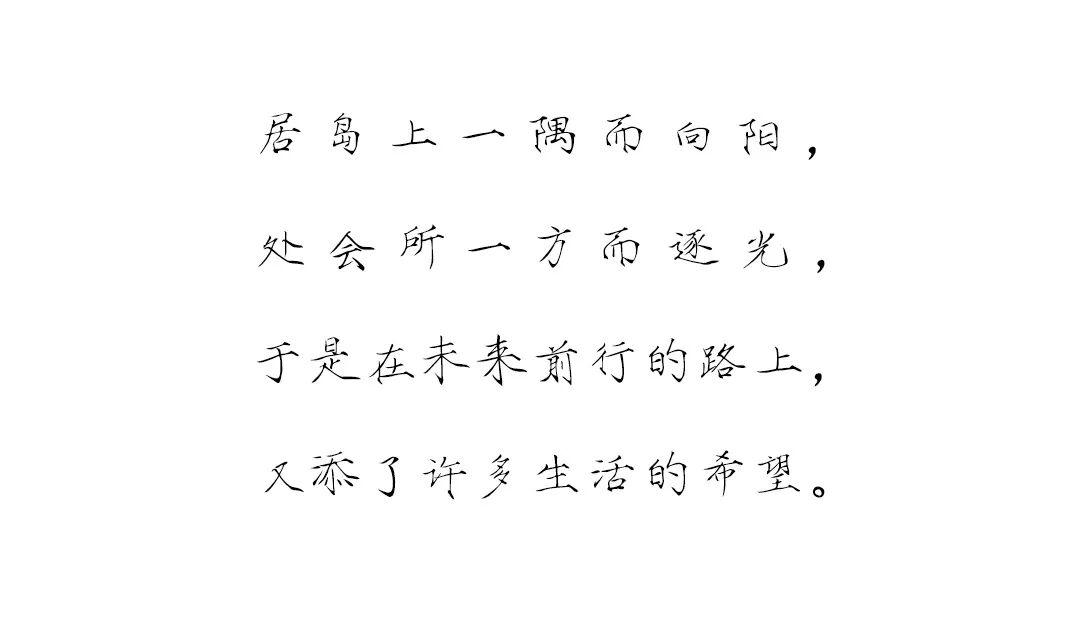 居岛上一隅而向阳，
处会所一方而逐光，
于是在未来前行的路上，
又添了许多生活的希望。